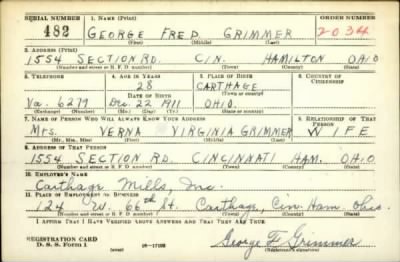 SERIAL NUMBER 1. NAME (Print) ORDER NUMBER
482 GEORGE FRED GRIMMER 2034
(First) (Middle) (Last)
2. ADDRESS (Print)
1554 SECTION RD. CIN. HAMILTON OHIO
(Number and street or R. F. D. number) (Town) (County) (State)
3. TELEPHONE 4. AGE IN YEARS 5. PLACE OF BIRTH 6. COUNTRY OF CITIZENSHIP
28 CARTHAGE
DATE OF BIRTH (Town or county)
Va. 6279 Dec. 22 1911 OHIO.
(Exchange) (Number) (Mo.) (Day) (Yr.) (State or country)
7. NAME OF PERSON WHO WILL ALWAYS KNOW YOUR ADDRESS 8. RELATIONSHIP OF THAT PERSON
Mrs. VERNA VIRGINIA GRIMMER WIFE
(Mr., Mrs., Miss) (First) (Middle) (Last)
9. ADDRESS OF THAT PERSON
1554 SECTION RD. CINCINNATI HAM. OHIO.
(Number and street or R. F. D. number) (Town) (County) (State)
10. EMPLOYER'S NAME
Carthage Mills, Inc.
11. PLACE OF EMPLOYMENT OR BUSINESS
124 W. 66th St. Carthage, Cin. Ham. Ohio.
(Number and street or R. F. D. number) (Town) (County) (State)
I AFFIRM THAT I HAVE VERIFIED ABOVE ANSWERS AND THAT THEY ARE TRUE
REGISTRATION CARD George F. Grimmer
D. S. S. Form 1 (over) (Registrant's signature)